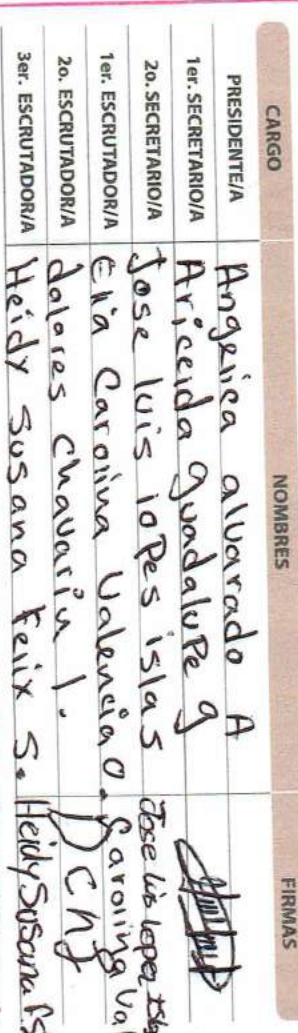 CARGO NOMBRES FIRMAS
PRESIDENTE/A Angelica alvarado A
1er. SECRETARIO/A Ariceida guadalupe g
2o. SECRETARIO/A Jose luis lopes islas Jose luis lopez Isla
1er. ESCRUTADOR/A Elia Carolina Valencia O. Carolina Val
2o. ESCRUTADOR/A dolores chavarin l. D Ch L
3er. ESCRUTADOR/A Heidy Susana Felix S. Heidy Susana F.S